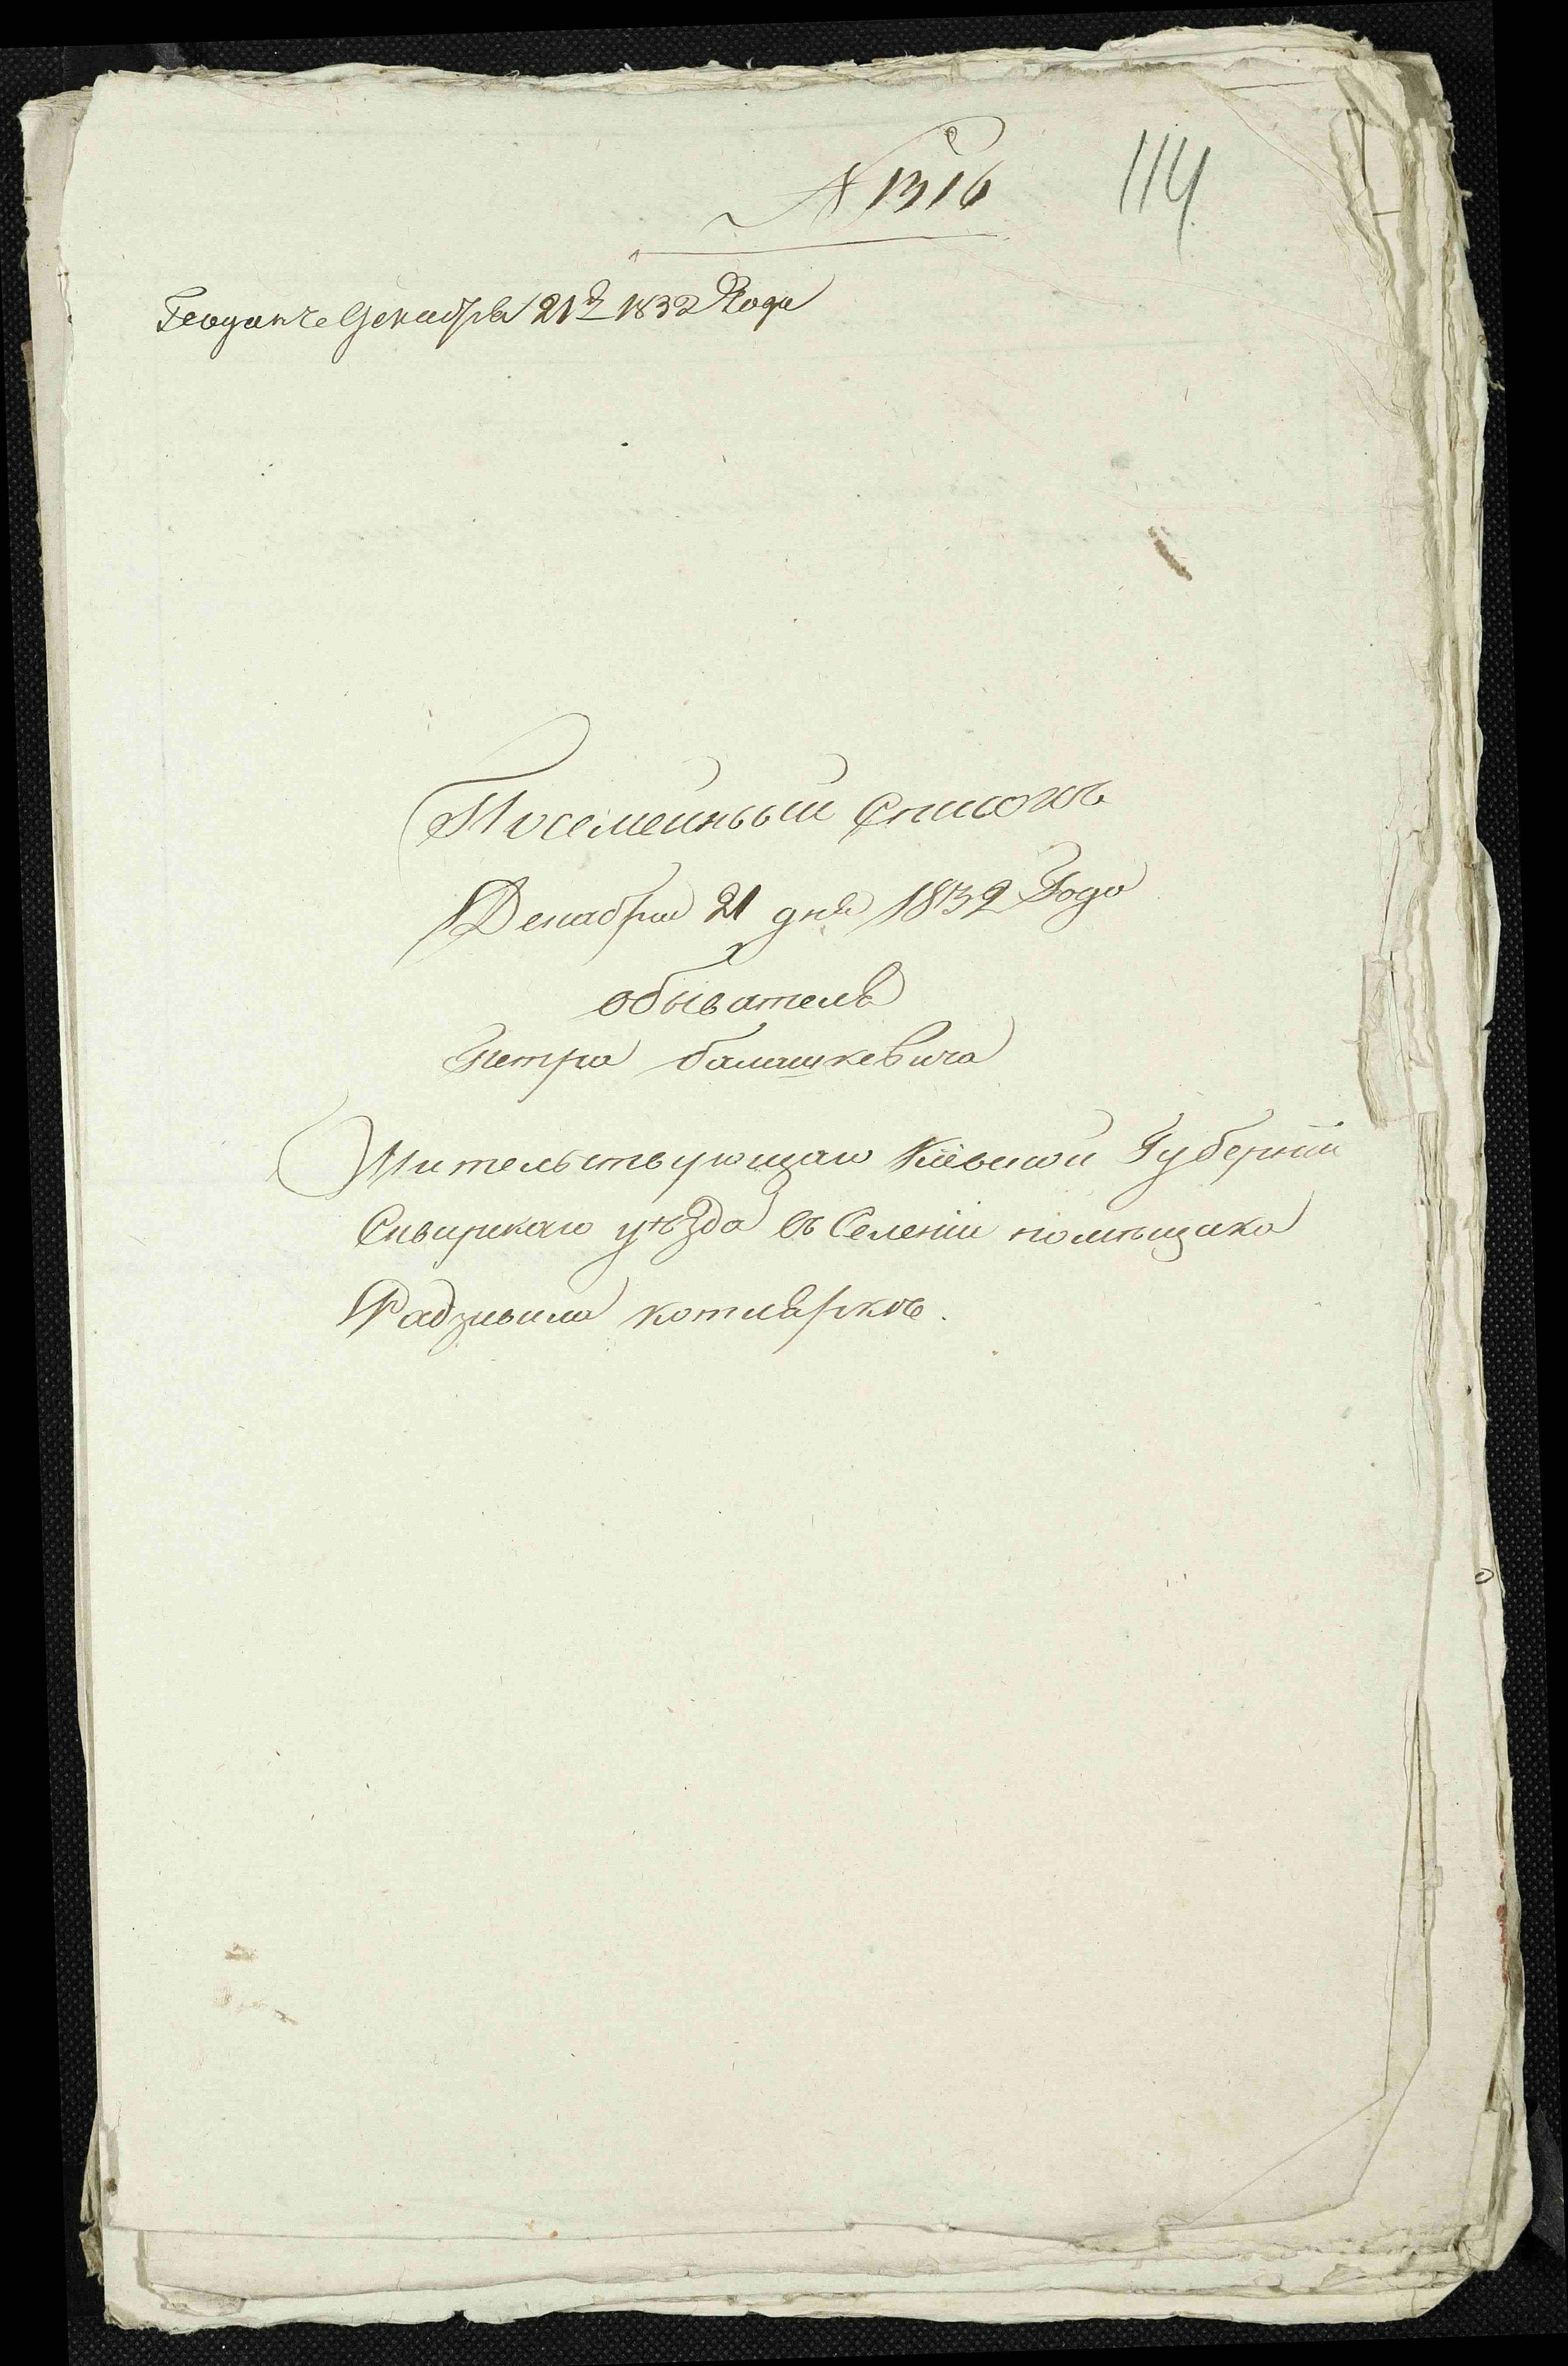 № 1316
114
Поданъ Декабря 21го 1832 Года
Посемейный Списокъ
Декабря 21 дня 1832 Года
обывателя
Петра балашкевича
Жительствующаго Кіевской Губерніи
Сквирскаго уѣзда въ Селеніи помѣщика
Радзивила котлярке.